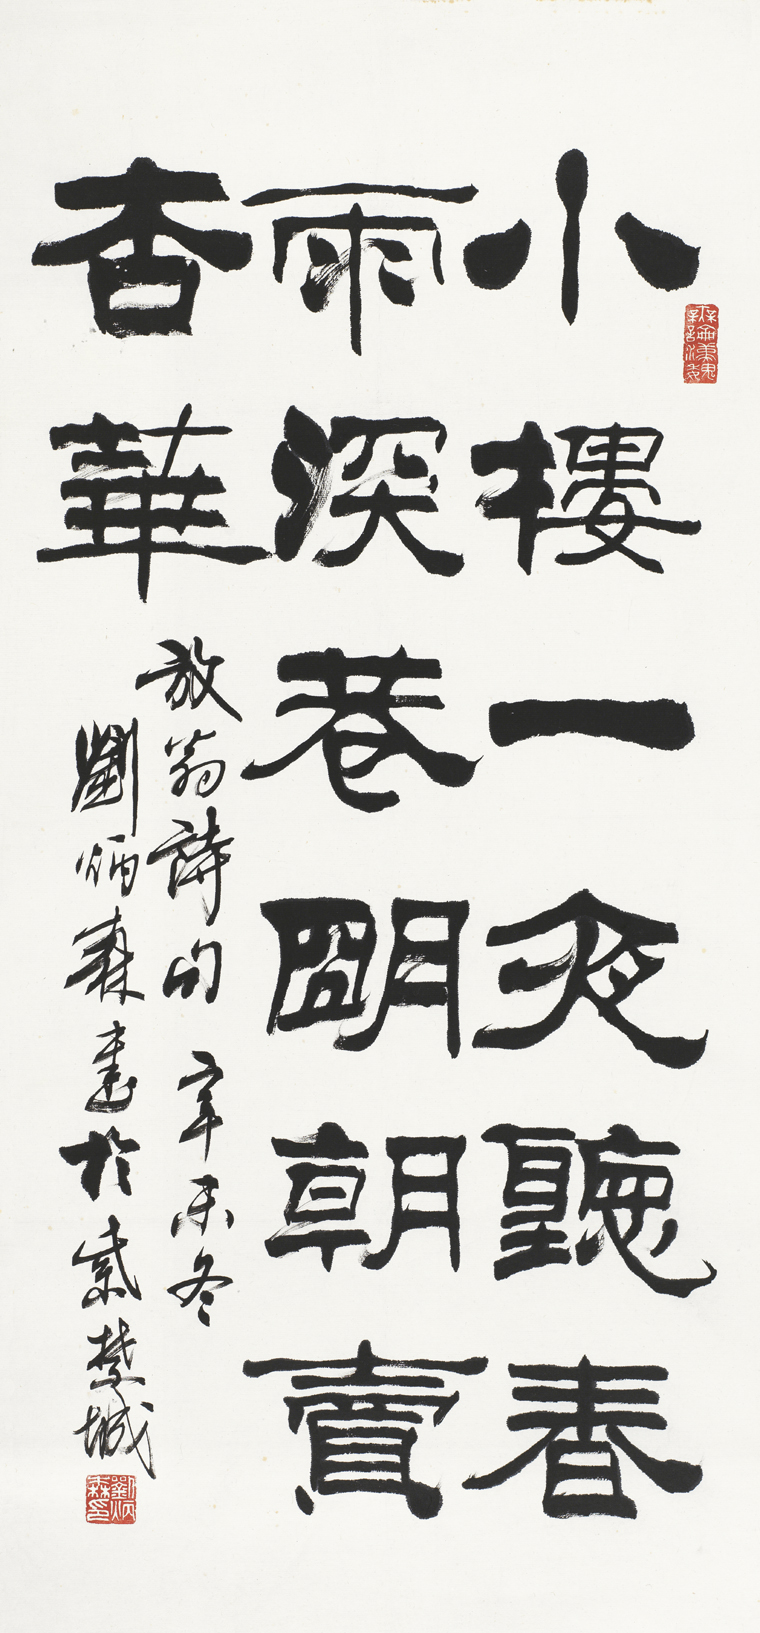 小樓一夜聽春
雨深巷朙朝賣
杏華
放翁詩句 辛未冬
劉炳森書於紫禁城
劉炳森印